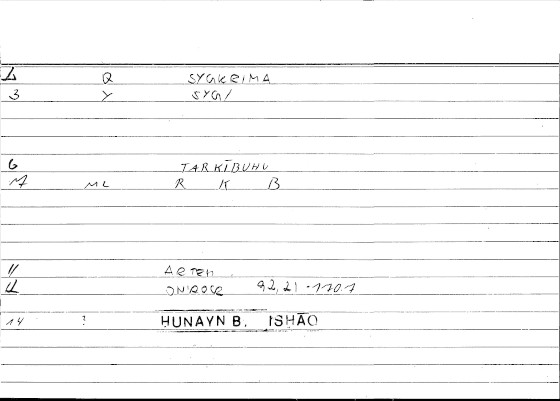 1 Q SYGKRIMA
3 Y SYG/
6 TARKĪBUHU
M ML R K B
11 ARTEM
ONIROCR 92,21 -170,1
14 ? HUNAYN B. ISHĀQ